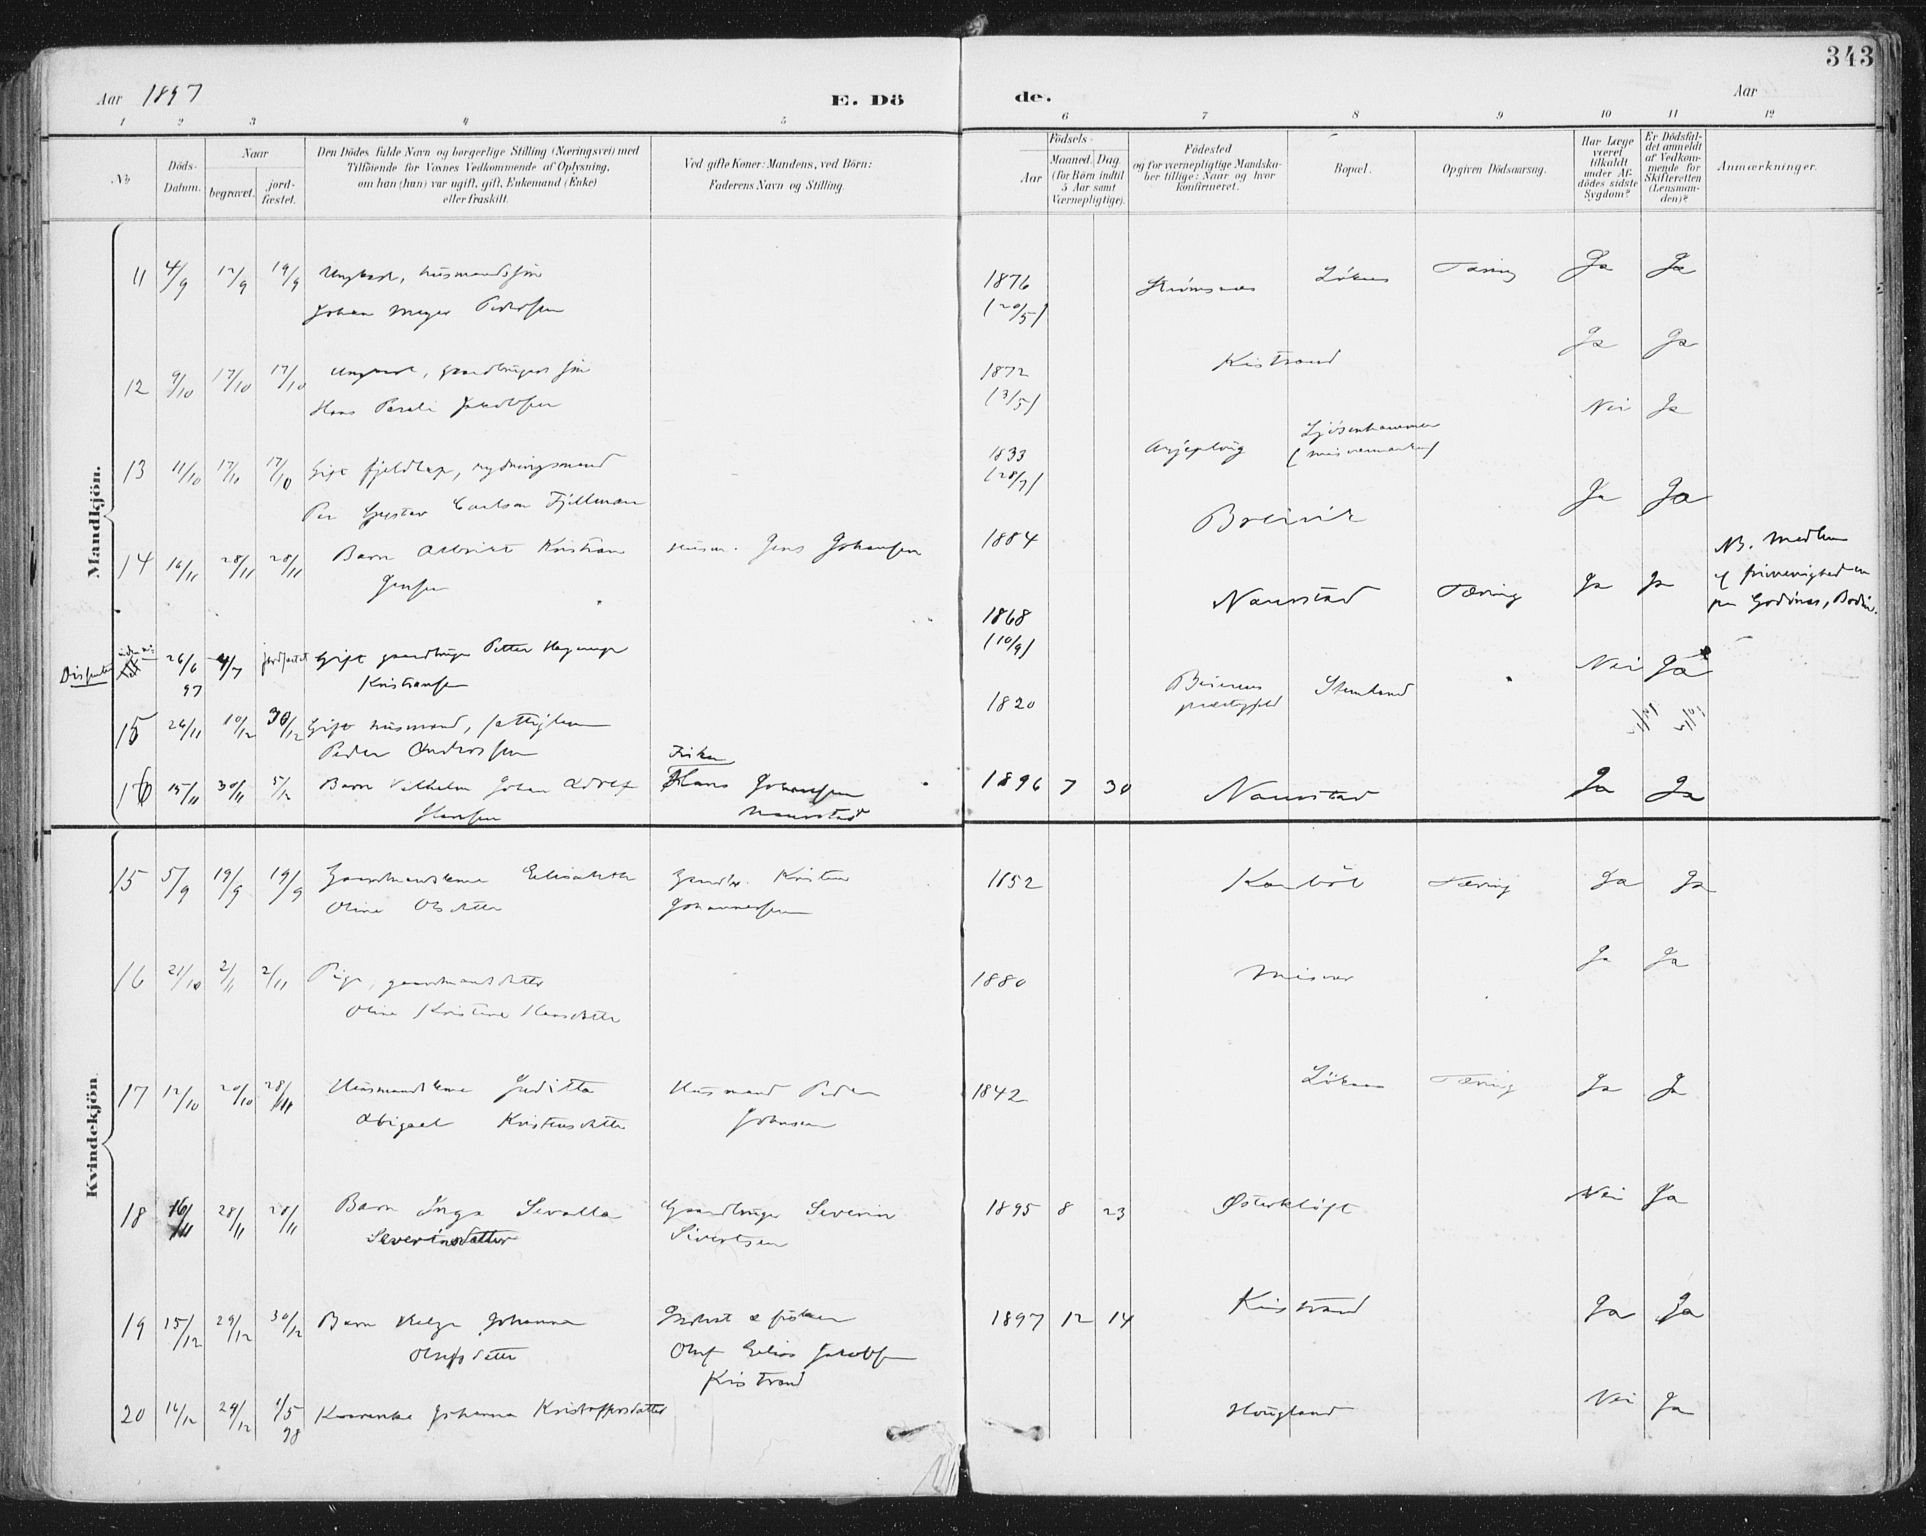 343
Aar 1897
E. Dö
de.
Aar
1 2 3 4 5 6 7 8 9 10 11 12
No
Döds-
Datum.
Naar
begravet.
jord-
fæstet.
Den Dödes fulde Navn og borgerlige Stilling (Næringsvei) med
Tilföiende for Voxnes Vedkommende af Oplysning,
om han (hun) var ugift, gift, Enkemand (Enke)
eller fraskilt.
Ved gifte Koner: Mandens, ved Börn:
Faderens Navn og Stilling.
Födsels-
Aar
Maaned. Dag.
(for Börn indtil
5 Aar samt
Værnepligtige).
Födested
og for værnepligtige Mandska-
ber tillige: Naar og hvor
konfirmeret.
Bopæl.
Opgiven Dödsaarsag.
Har Læge
været
tilkaldt
under Af-
dödes sidste
Sygdom?
Er Dödsfal-
det anmeldt
af Vedkom-
mende for
Skifteretten
(Lensman-
den)?
Anmærkninger.
Mandkjön.
11 4/9 12/9 19/9 Ungkarl, husmandssøn 1876 Løknes Tæring Ja Ja
Johan Meyer Pedersen (20/5)
12 9/10 17/10 17/10 Ungkarl, gaardbrugers søn 1872 Kistrand Ja Ja
Hans Jakobsen (3/5)
13 11/10 17/10 17/10 Gift fjeldlap, rydningsmand 1833 Arjeploug Nei Ja
Per Gustav Carlson Fjellman (28/7)
14 16/11 28/11 28/11 Barn Albrikt Kristian Husm. Jens Johansen 1884 Breivik Ja Ja
Jensen
Dissenter 26/6 97 4/7 jordfæstet Gift gaardbruger Petter 1868 Naurstad Tæring Ja Ja NB. Medlem
Kristiansen (10/9) af frimenighed en
Godønes, Bodin.
15 26/11 10/12 30/12 Gift husmand, fattiglem 1820 Beierens præstegjeld Nei Ja
Peder Andersen
16 15/11 30/11 5/12 Barn Vilhelm Johan Adolf Fisker Hans Johansen 1896 7 30 Naurstad Ja Ja
Hansen Naurstad
Kvindekjön
15 5/9 19/9 19/9 Gaardmandskone Elisabeth Gaardbr. Kristen 1852 Tæring Ja Ja
Oline Olsdatter Johannessen
16 21/10 2/11 2/11 Pige, gaardmandsdatter 1880 Misvær Ja Ja
Oline Kristine Hansdatter
17 12/10 20/10 28/11 Husmandskone Juditta Husmand Peder 1842 Løknes Tæring Ja Ja
Abigael Kristensdatter Johnsen
18 16/11 28/11 28/11 Barn Inga Sevalla Gaardbruger Severin 1895 8 23 Østerkløft Nei Ja
Severinsdatter Sivertsen
19 15/12 29/12 30/12 Barn Helga Johanna & fisker 1897 12 14 Kistrand Ja Ja
Olufsdatter Oluf Elias Jakobsen
Kistrand
20 16/12 29/12 1/5 98 Johanna Kristoffersdatter Hougland Nei Ja